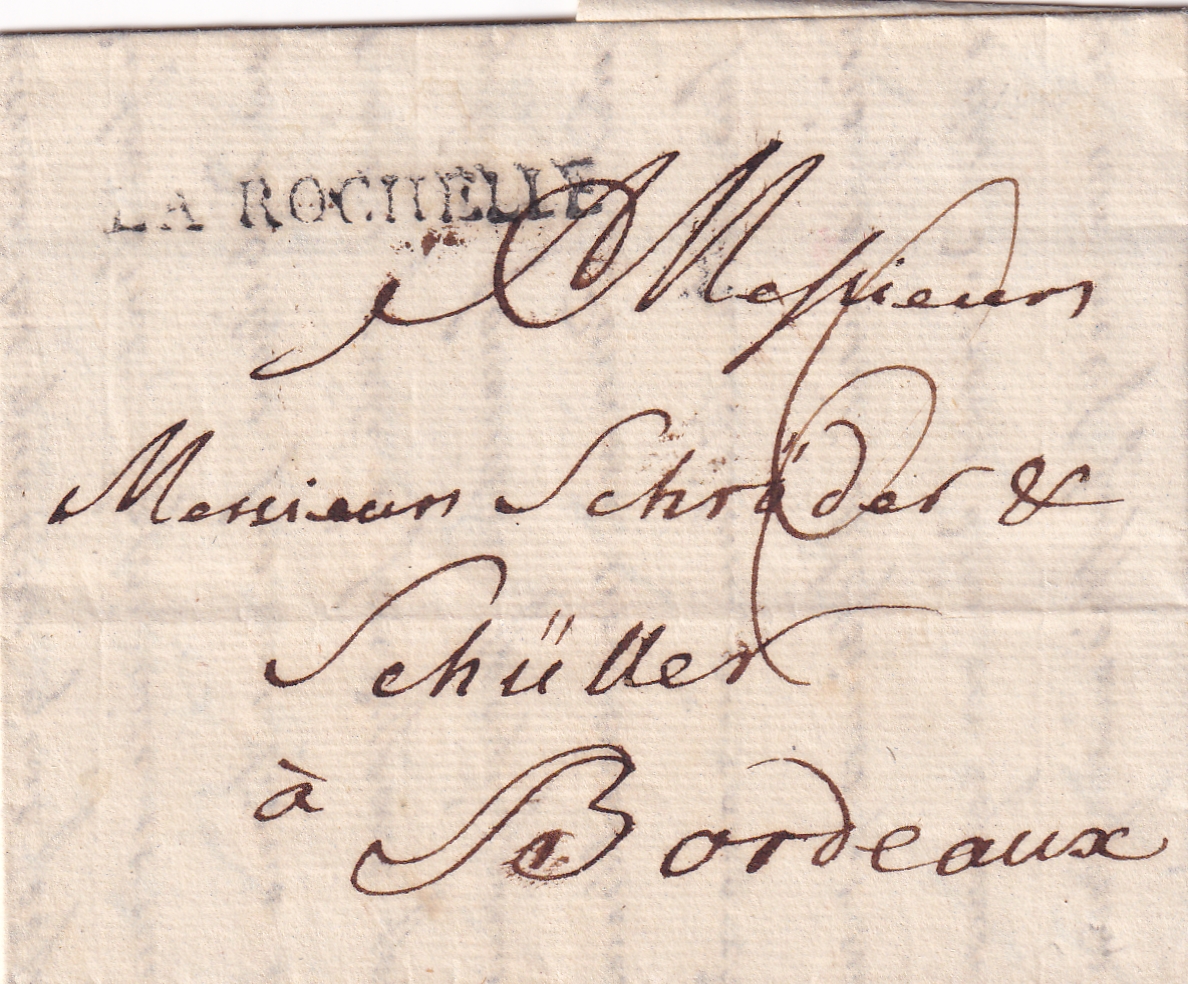 LA ROCHELLE
Messieurs
Messieurs Schröder &
Schüller
à Bordeaux